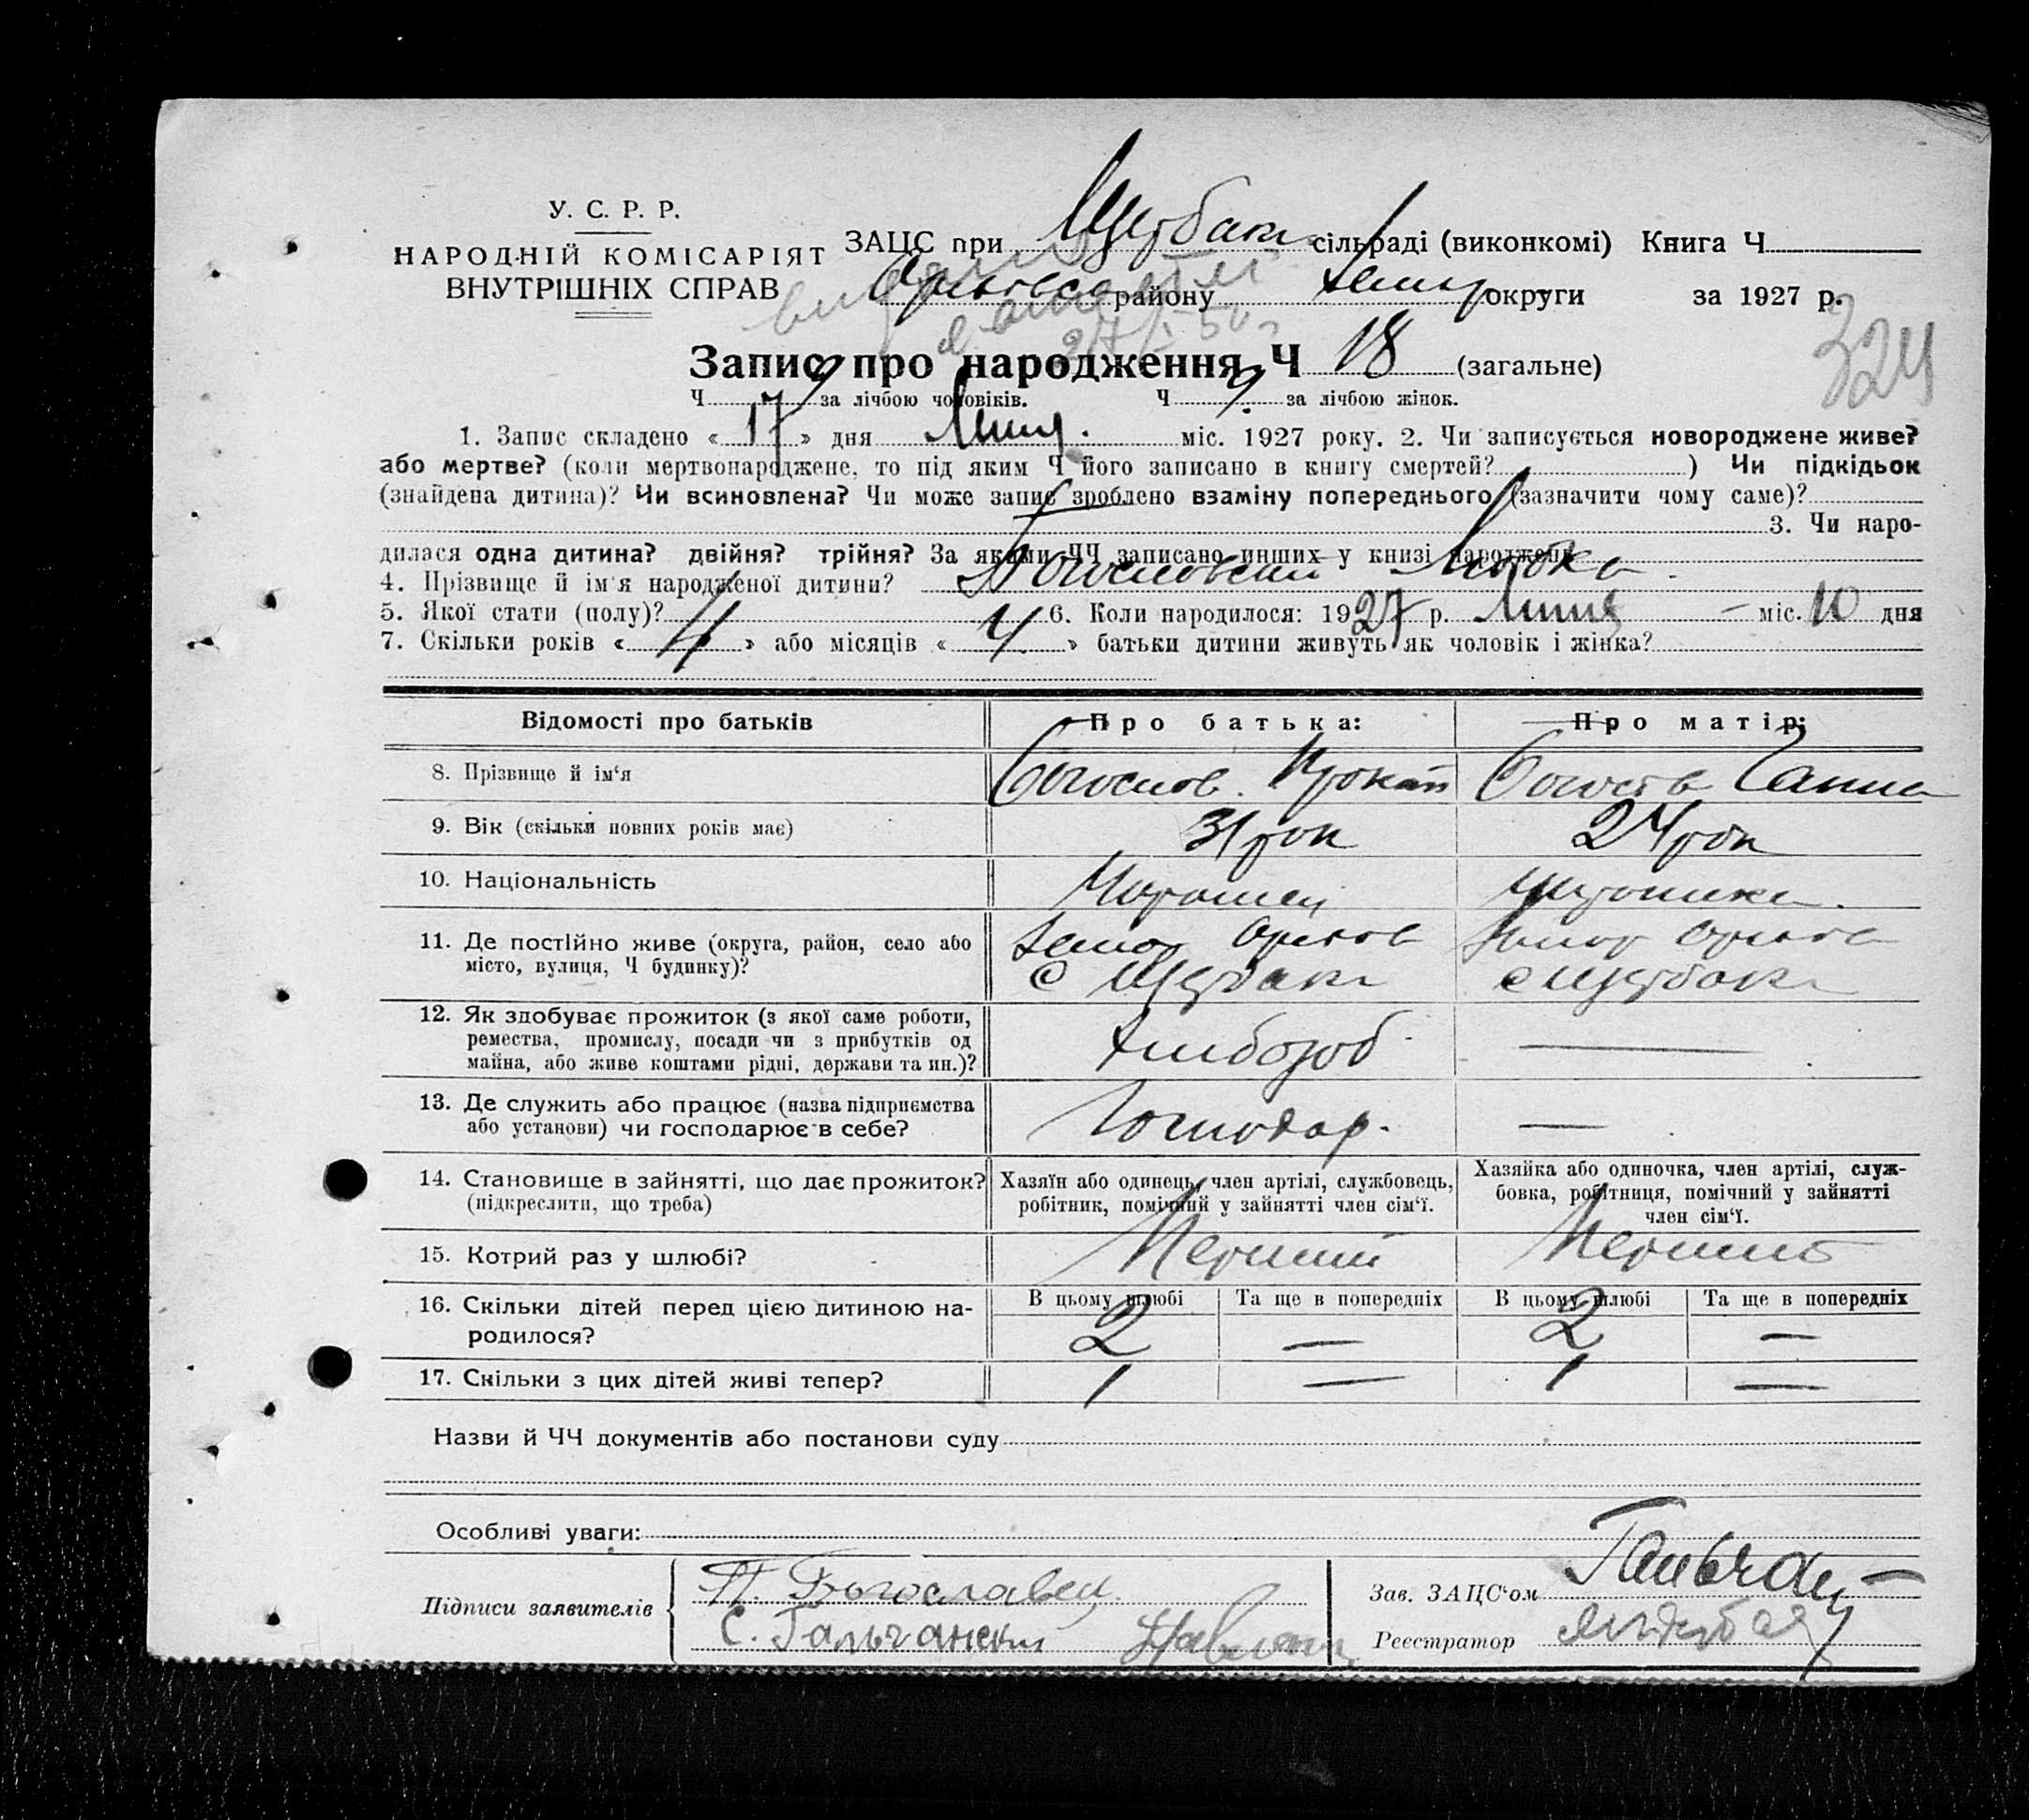 У. С. Р. Р.
НАРОДНІЙ КОМІСАРІЯТ
ВНУТРІШНІХ СПРАВ
ЗАЦС при Щербаки сільраді (виконкомі) Книга Ч
району округи за 1927 р.
324
Запис про народження Ч 18 (загальне)
Ч 9 за лічбою чоловіків. Ч 9 за лічбою жінок.
1. Запис складено « 17 » дня Липц. міс. 1927 року. 2. Чи записується новороджене живе?
або мертве? (коли мертвонароджене, то під яким Ч його записано в книгу смертей? ) Чи підкідьок
(знайдена дитина)? Чи всиновлена? Чи може запис зроблено взаміну попереднього (зазначити чому саме)?
3. Чи наро-
дилася одна дитина? двійня? трійня? За якими ЧЧ записано инших у книзі народжень
4. Прізвище й ім'я народженої дитини?
5. Якої стати (полу)? Ч 6. Коли народилося: 1927 р. Липця — міс. 10 дня
7. Скільки років « 4 » або місяців « 4 » батьки дитини живуть як чоловік і жінка?
Відомості про батьків Про батька: Про матір:
8. Прізвище й ім'я Богослов. Прокоп Ганна
9. Вік (скільки повних років має) 31 рок 24 рок
10. Національність
11. Де постійно живе (округа, район, село або
місто, вулиця, Ч будинку)?
с Щербаки с Щербаки
12. Як здобуває прожиток (з якої саме роботи,
ремества, промислу, посади чи з прибутків од
майна, або живе коштами рідні, держави та ин.)?
Хлібороб —
13. Де служить або працює (назва підприємства
або установи) чи господарює в себе?
Господар. —
14. Становище в зайнятті, що дає прожиток?
(підкреслити, що треба)
Хазяїн або одинець, член артілі, службовець,
робітник, помічний у зайнятті член сім'ї.
Хазяйка або одиночка, член артілі, служ-
бовка, робітниця, помічний у зайнятті
член сім'ї.
15. Котрий раз у шлюбі? Перший Перший
16. Скільки дітей перед цією дитиною на-
родилося?
В цьому шлюбі Та ще в попередніх В цьому шлюбі Та ще в попередніх
2 — 2 —
17. Скільки з цих дітей живі тепер? 1 — 1 —
Назви й ЧЧ документів або постанови суду
Особливі уваги:
Підписи заявителів
П. Богославец
С. Гальчанский
Зав. ЗАЦС'ом
Реєстратор